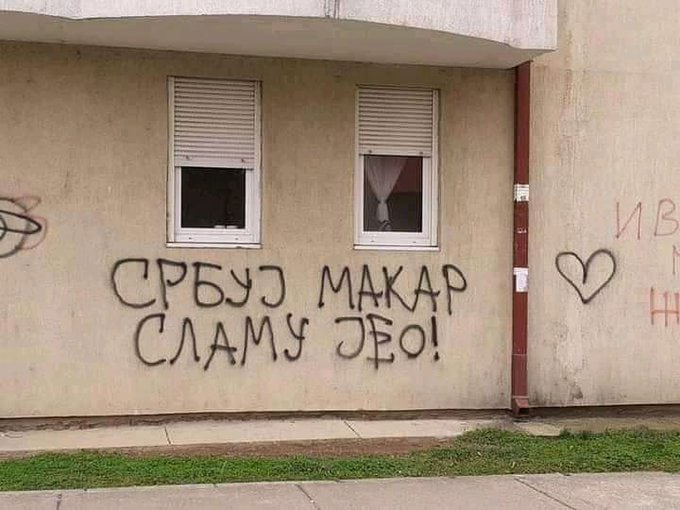 СРБУЈ МАКАР
СЛАМУ ЈЕО!